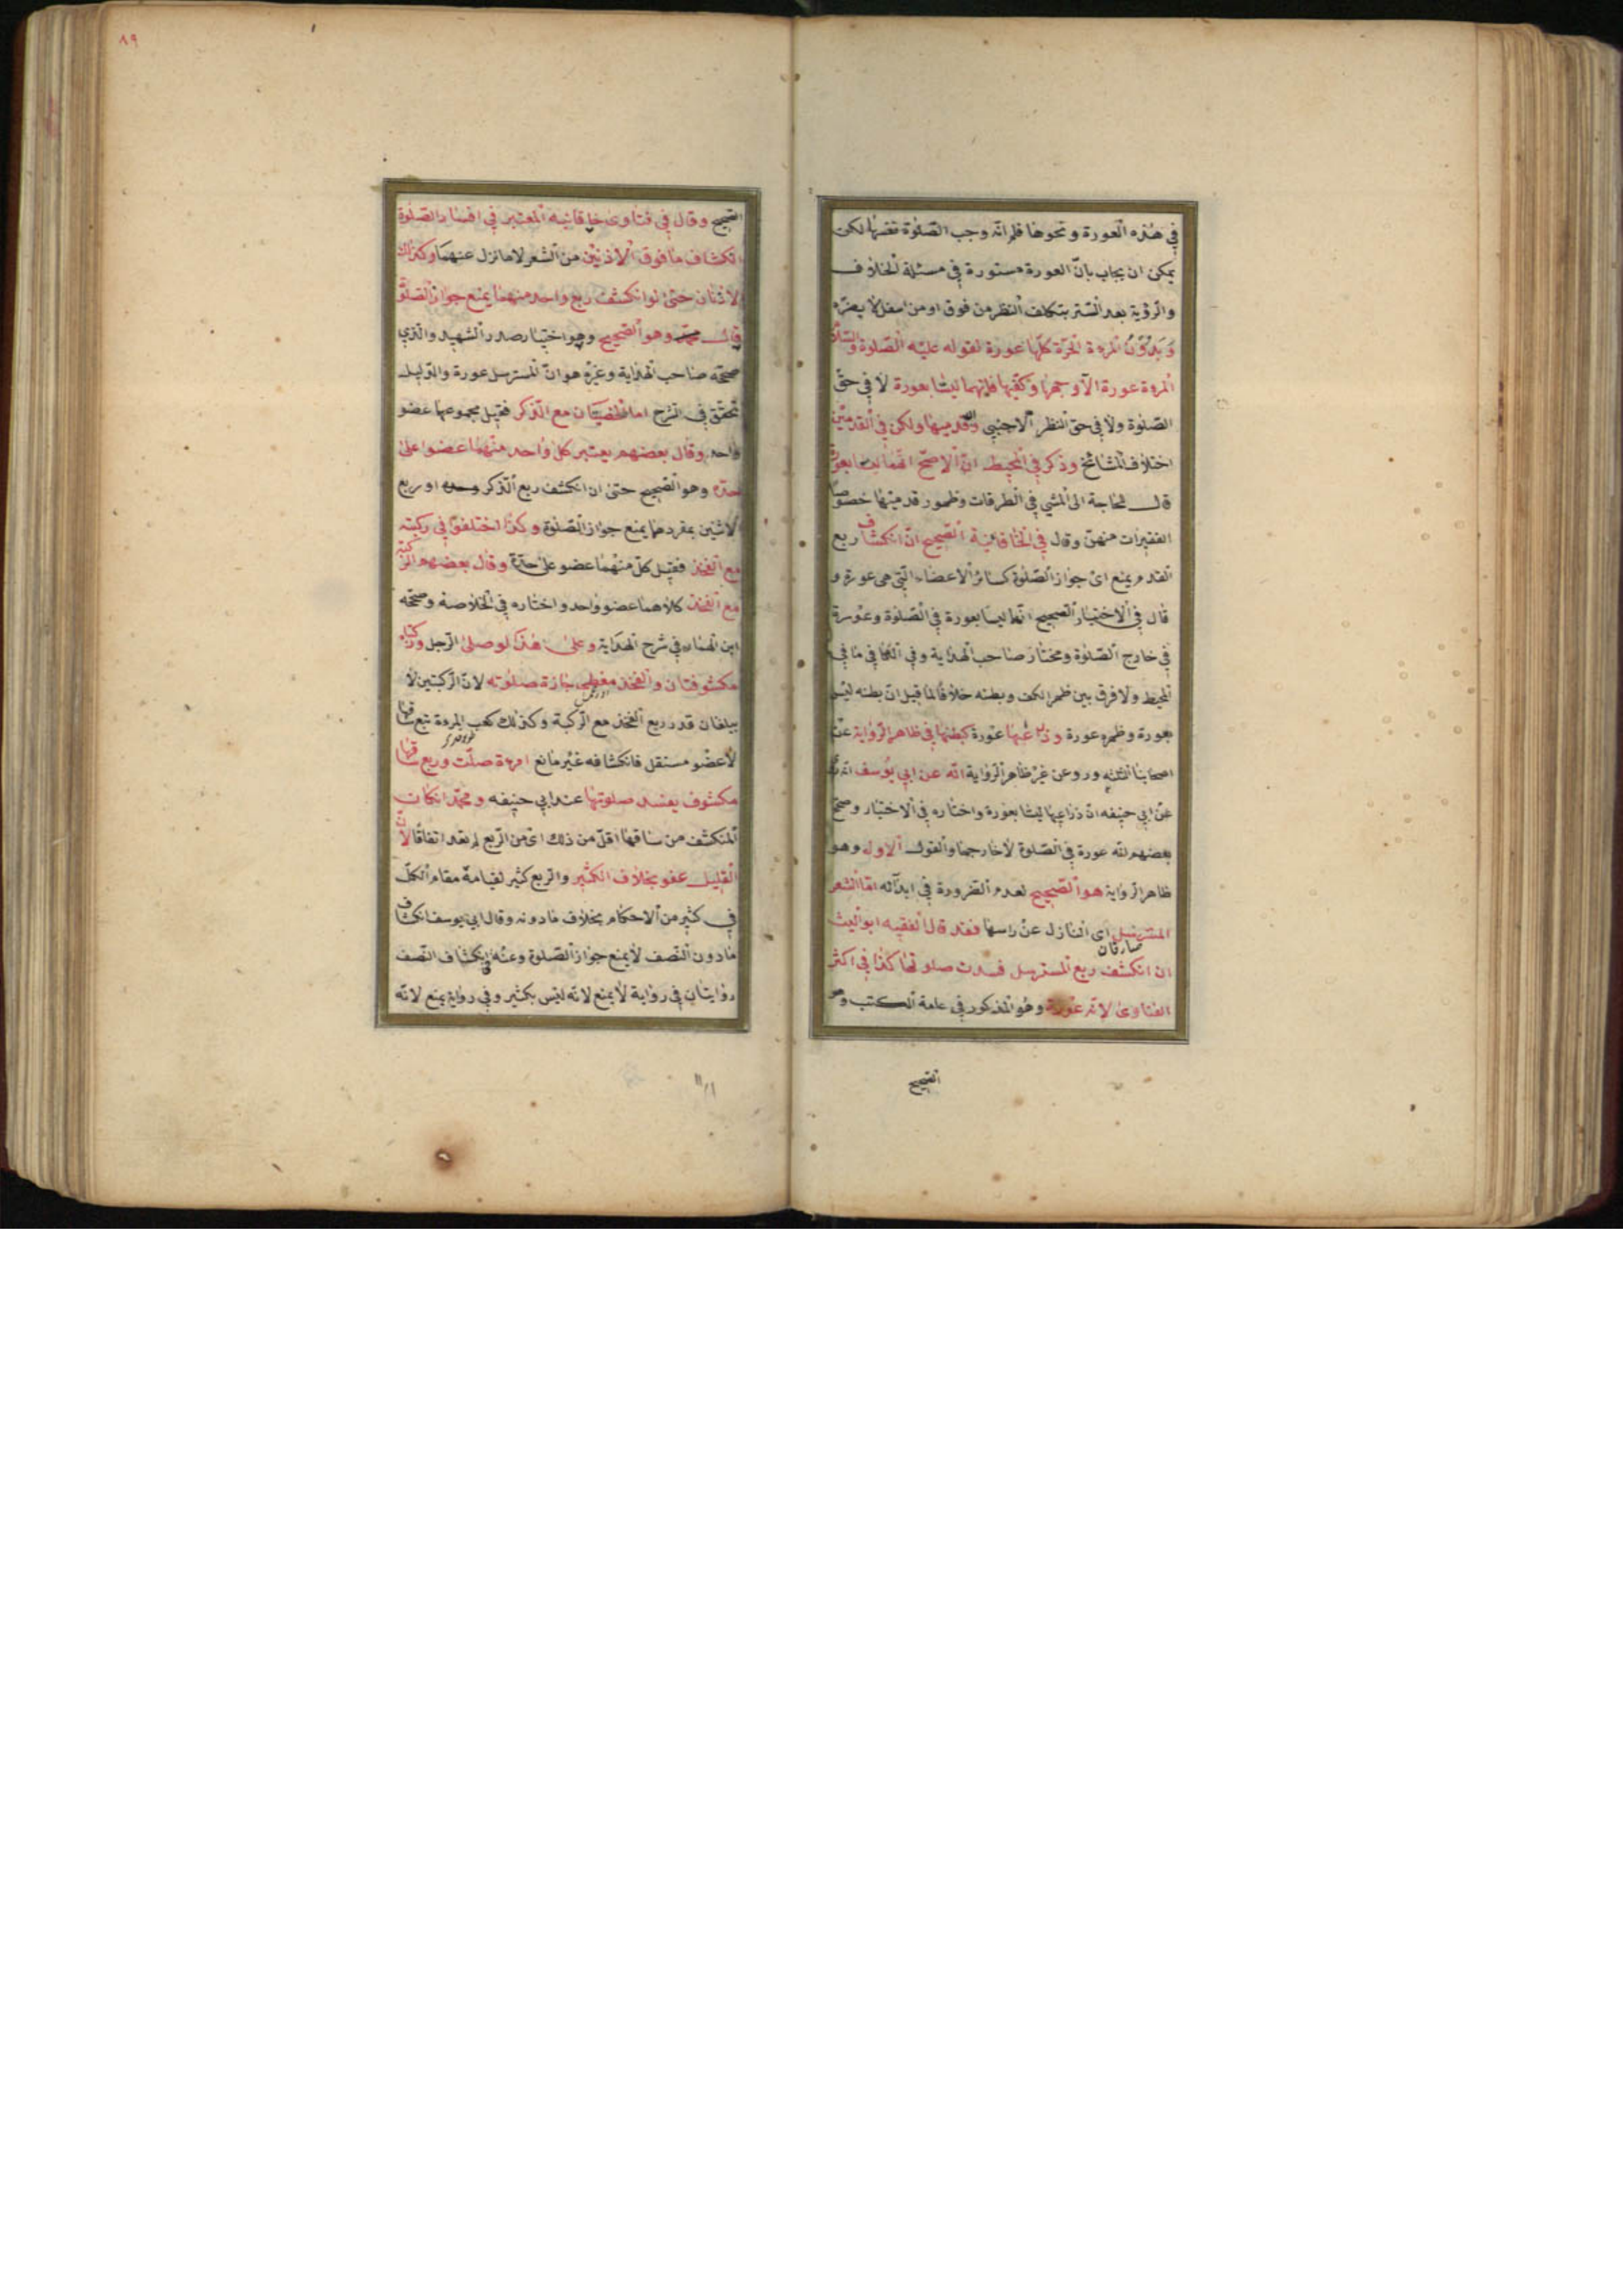 في هذه العورة ونحوها فلم انه وجب الصلوة فقرها لكن
يمكن ان يجاب بان العورة مستورة في مسئلة الخلاف
والرؤية بعد الستر بتكلف النظر من فوق او من اسفل لا يضره
وبدن المرءة الحرة كلها عورة لقوله عليه الصلوة والسلام
المروة عورة الا وجهها وكفيها فانهما ليسا بعورة لا في حق
الصلوة ولا في حق النظر الاجنبي وقدميها ولكن في القدمين
اختلاف المشائخ وذكر في المحيط ان الاصح انهما ليسا بعورة
قال لحاجة الى المشي في الطرقات وظهور قدميها خصوصا
الفقيرات منهن وقال في الخاقانية الصحيح ان انكشاف ربع
القدم يمنع اى جواز الصلوة كسائر الاعضاء التي هى عورة و
قال في الاختيار الصحيح انها ليسا بعورة في الصلوة وعورة
في خارج الصلوة ومختار صاحب الهداية وفي الكافي ما في
المحيط ولا فرق بين ظهر الكف وبطنه خلافا لما قيل ان بطنه ليس
بعورة وظهره عورة وذراعيها عورة كبطنها في ظاهر الرواية عن
اصحابنا الثلثه وروي عن غير ظاهر الرواية انه عن ابي يوسف انه
عن ابي حنيفه ان ذراعيها ليسا بعورة واختاره في الاختيار وصحح
بعضهم انه عورة في الصلوة لا خارجها والقول الاول وهو
ظاهر الرواية هو الصحيح لعدم الضرورة في ابدائه اما الشعر
المسترسل اى النازل عن راسها فقد قال الفقيه ابو الليث
ان انكشف ربع المسترسل فسدت صلوتها كذا في اكثر
الفتاوى لانه عورة وهو المذكور في عامة الكتب وهو
الصحيح
٨٩
الصحيح وقال في فتاوى خاقانيه المعتبر في افساد الصلوة
انكشاف ما فوق الاذنين من الشعر لا ما نزل عنهما وكذلك
الاذنان حتى لو انكشف ربع واحد منهما يمنع جواز الصلوة
قال محمد وهو الصحيح وهو اختيار صدر الشهيد والذي
صححه صاحب الهداية وغيره هو ان المسترسل عورة والدليل
تحقق في الشرح اما الخصيتان مع الذكر فقيل مجموعها عضو
واحد وقال بعضهم يعتبر كل واحد منهما عضوا على
حدة وهو الصحيح حتى ان انكشف ربع الذكر وحده او ربع
الانثيين بمفردهما يمنع جواز الصلوة وكذا اختلفوا في ركبته
مع الفخذ فقيل كل منهما عضو على حدة وقال بعضهم الركبة
مع الفخذ كلاهما عضو واحد واختاره في الخلاصة وصححه
ابن الهمام في شرح الهداية وعلى هذا لو صلى الرجل وركبتاه
مكشوفتان والفخذ مغطى جازة صلوته لان الركبتين لا
يبلغان قدر ربع الفخذ مع الركبة وكذلك كعب المروة تبع ساقها
لا عضو مستقل فانكشافه غير مانع امرءة صلت وربع ساقها
مكشوف يفسد صلوتها عند ابي حنيفه ومحمد ان كان
المنكشف من ساقها اقل من ذلك اى من الربع لم يعد اتفاقا لان
القليل عفو بخلاف الكثير والربع كثير لقيامه مقام الكل
في كثير من الاحكام بخلاف ما دونه وقال ابي يوسف انكشاف
ما دون النصف لا يمنع جواز الصلوة وعنه في انكشاف النصف
روايتان في رواية لا يمنع لانه ليس بكثير وفي رواية يمنع لانه